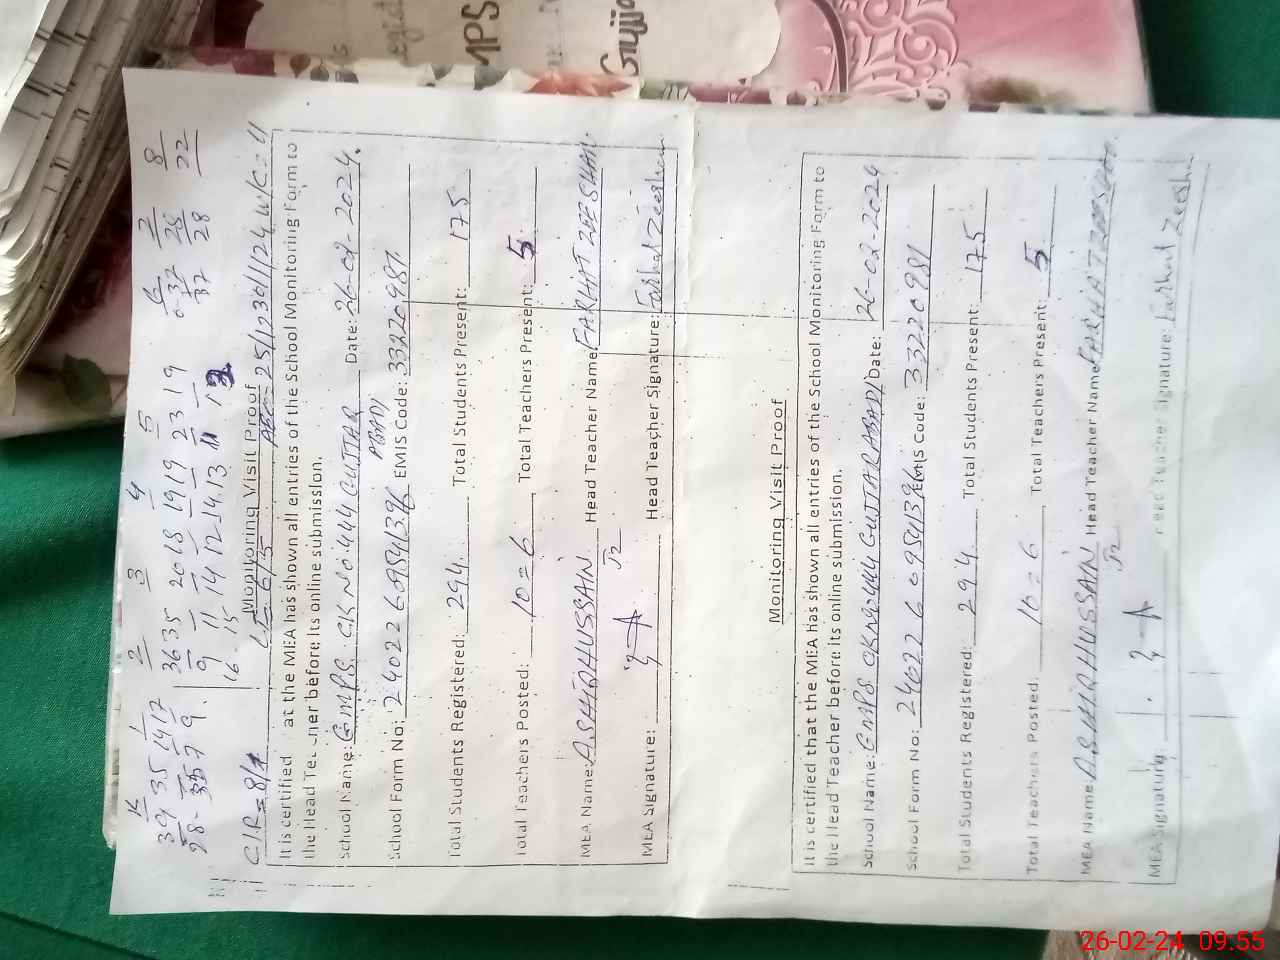 MPS
Gujja
K 1 2 3 4 5 6 7 8
39 35 14 17 36 35 20 18 19 19 23 19 0-37 25 22
28 - 7 9. 9 11 14 12 14 13 11 37 28
16 15
C/R = 8/
Monitoring Visit Proof
W/C = U
It is certified at the MEA has shown all entries of the School Monitoring Form to
the Head Tea ner before its online submission.
School Name: GMPS. CK NO. 444 GUJJAR ABAD) Date: 26-02-2024.
School Form No: 24022 6 0954139 EMIS Code: 33220981
Total Students Registered: 294 Total Students Present: 175
Total Teachers Posted: 10 = 6 Total Teachers Present: 5
MEA Name: ASHIQ HUSSAIN Head Teacher Name: FARHAT ZEESHAN
MEA Signature: Head Teacher Signature: Farhat Zeeshan
Monitoring Visit Proof
It is certified that the MEA has shown all entries of the School Monitoring Form to
the Head Teacher before its online submission.
School Name: GMPS. CKNO 444 GUJJARABAD) Date: 26-02-2024
School Form No: 24022 6 0954139 EMIS Code: 33220981
Total Students Registered: 294 Total Students Present: 175
Total Teachers Posted: 10 = 6 Total Teachers Present: 5
MEA Name: ASHIQ HUSSAIN Head Teacher Name: FARHAT ZEESHAN
MEA Signature: Signature: Farhat Zeeshan
26-02-24 09:55